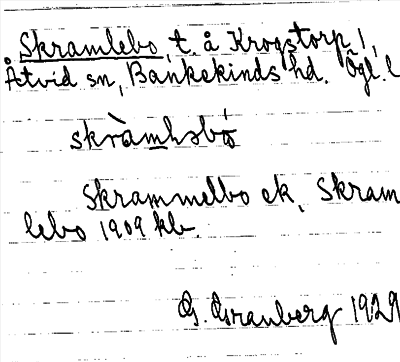 Skramlebo, t. å Krogstorp 1,
Åtvid sn, Bankekinds hd. Ögl. l
skràmhsbó
Skrammelbo ek, Skram
lebo 1909 kb.
G. Granberg 1929